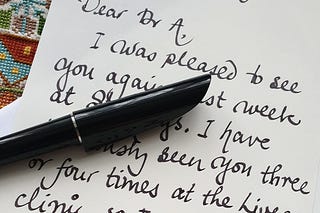 Dear Dr A.
I was pleased to see
you again last week
at
I have
seen you three
or four times at the Liver
clinic